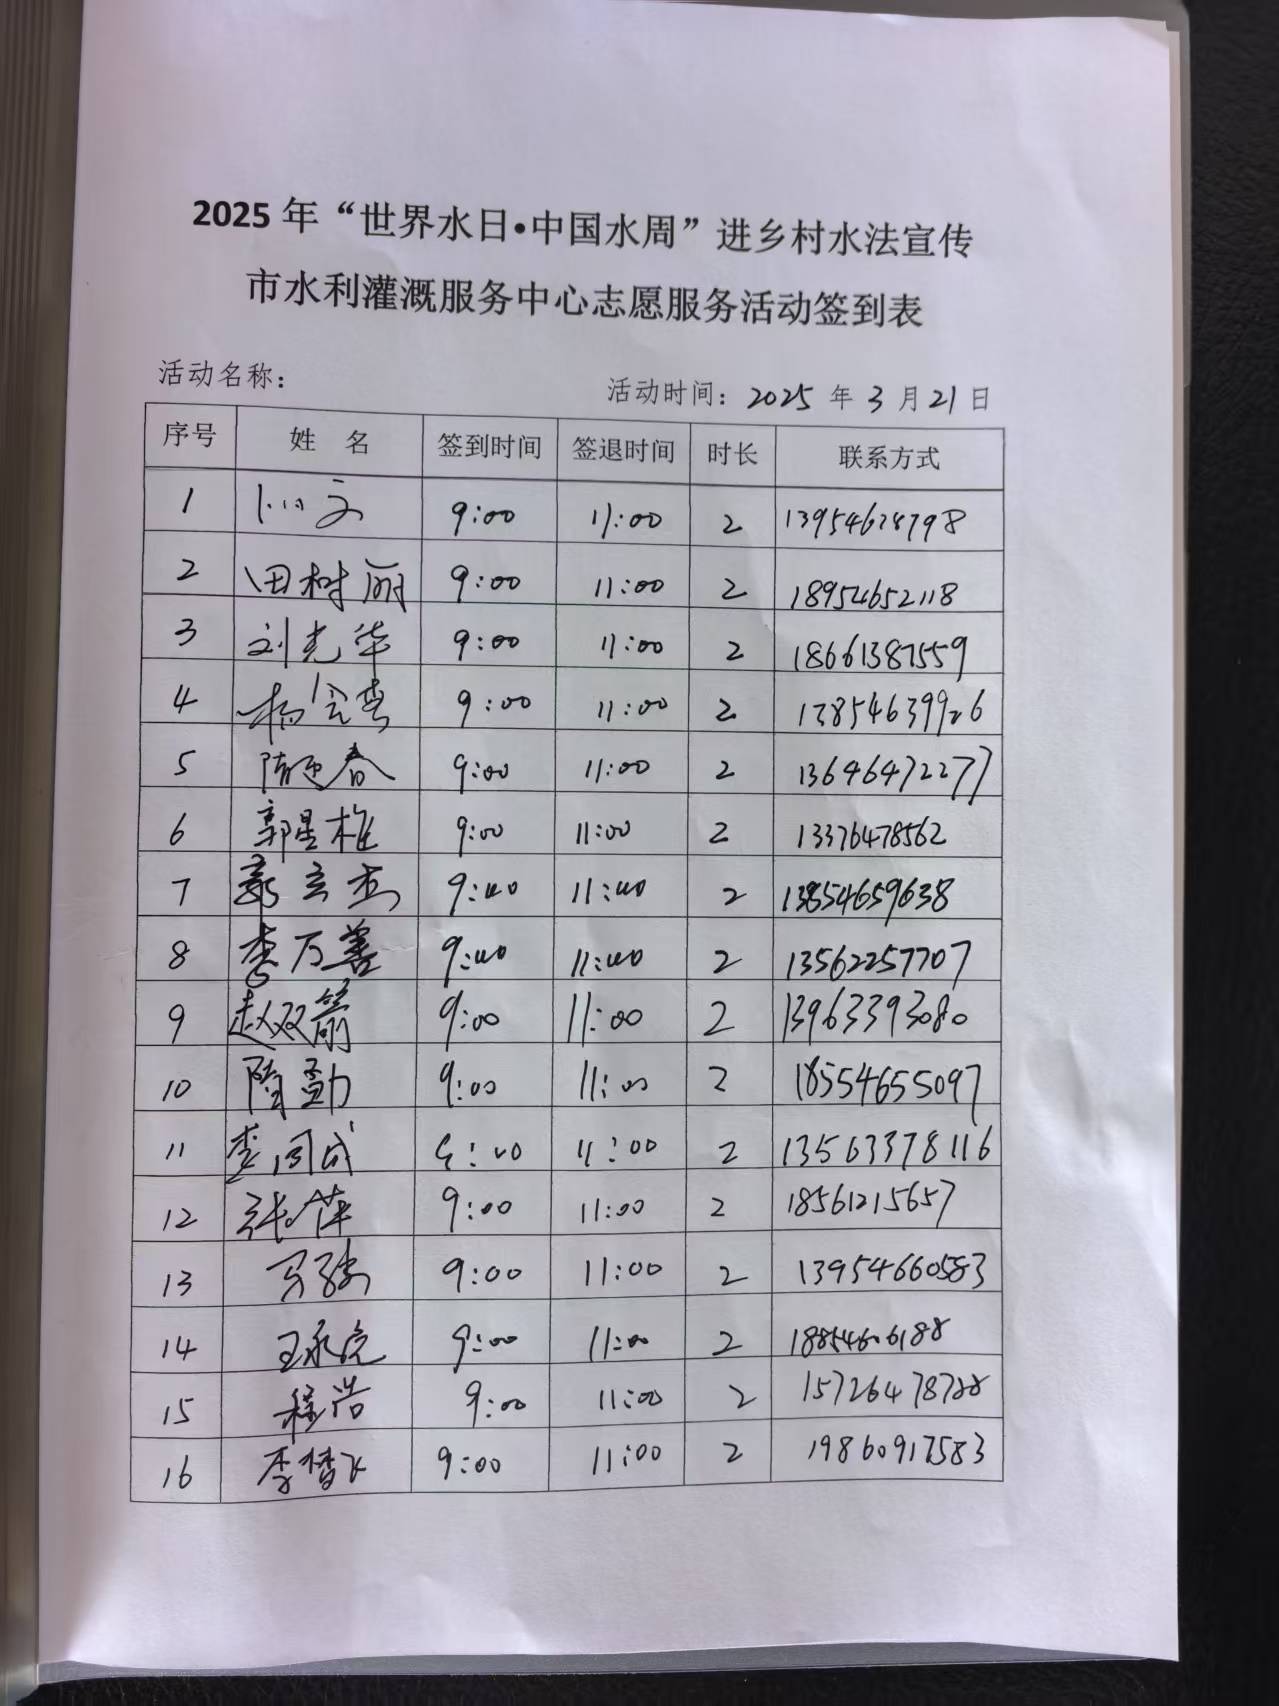 2025年“世界水日•中国水周”进乡村水法宣传
市水利灌溉服务中心志愿服务活动签到表
活动名称：
活动时间：2025年3月21日
序号 姓 名 签到时间 签退时间 时长 联系方式
1 9:00 11:00 2
2 田树丽 9:00 11:00 2 18954652118
3 刘光华 9:00 11:00 2 18661387559
4 9:00 11:00 2
5 隋迎春 9:00 11:00 2 13646472277
6 郭星 9:00 11:00 2 13376478562
7 郭立杰 9:00 11:00 2 13854659638
8 李万善 9:00 11:00 2 13562257707
9 赵双箭 9:00 11:00 2 13963393080
10 隋勐 9:00 11:00 2 18554655097
11 李同成 9:00 11:00 2 13563378116
12 张萍 9:00 11:00 2 18561215657
13 马 9:00 11:00 2 13954660583
14 王永亮 9:00 11:00 2 18854606188
15 程浩 9:00 11:00 2
16 李梦飞 9:00 11:00 2 19860917583